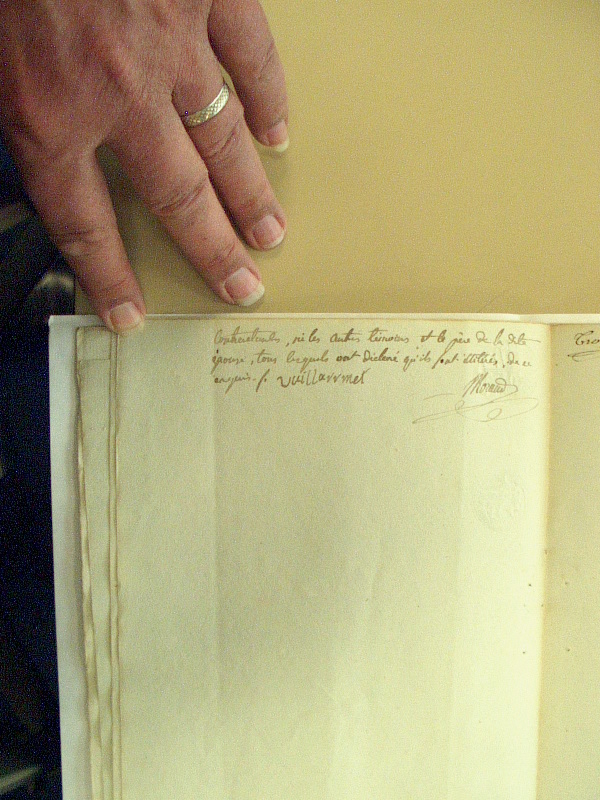 contractants, ni les autres témoins et le père de la dite
épouse, tous lesquels ont déclaré qu'ils sont illitérés, de ce
enquis. f. vuillarmet
Moraud